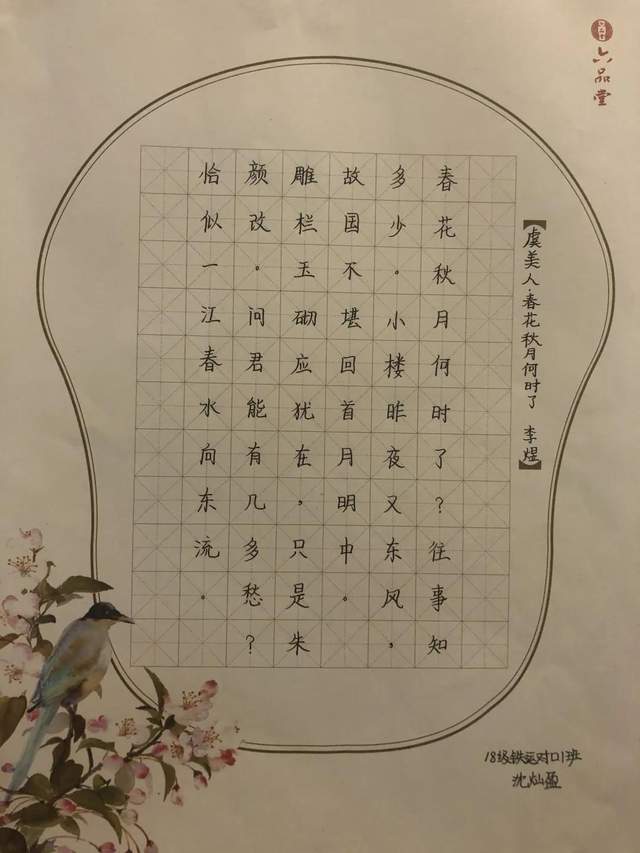 六品堂
【虞美人·春花秋月何时了 李煜】
春花秋月何时了？往事知
多少。小楼昨夜又东风，
故国不堪回首月明中。
雕栏玉砌应犹在，只是朱
颜改。问君能有几多愁？
恰似一江春水向东流。
18级铁运对口1班
沈灿盈